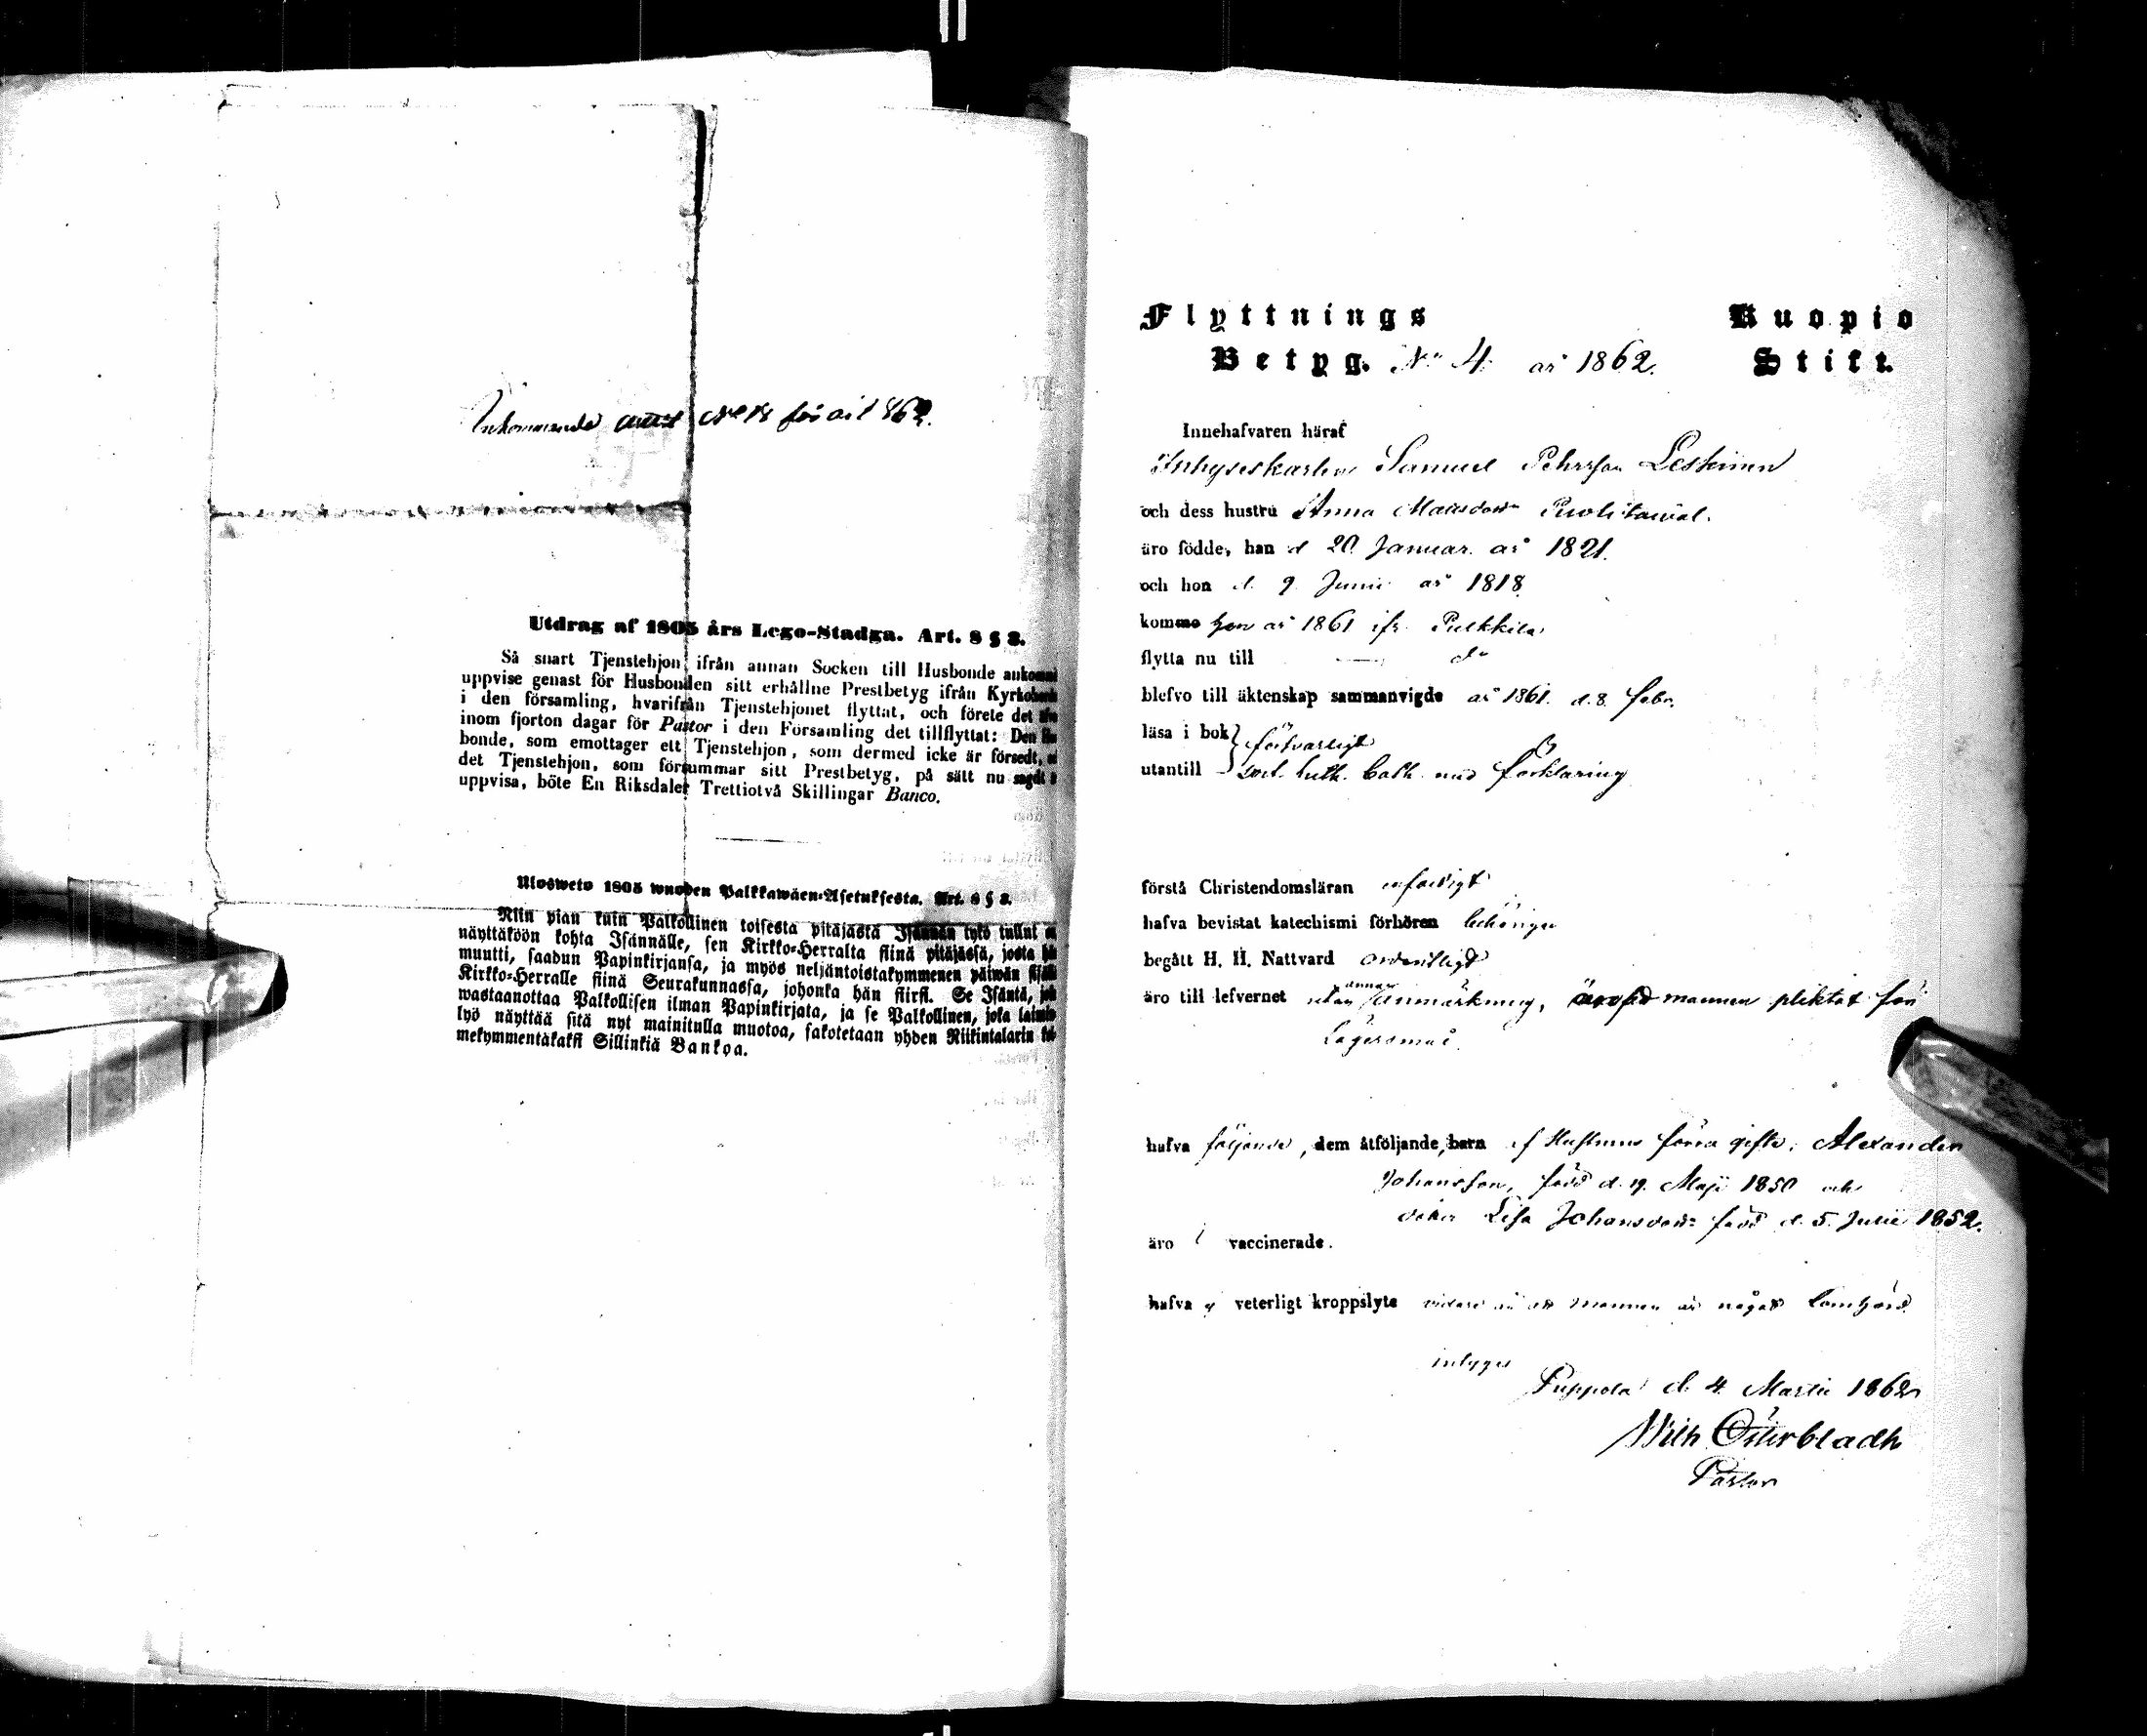 Inkommande attest No 18 för år 1862.
Utdrag af 1805 års Lego-Stadga. Art. 8 § 3.
Så snart Tjenstehjon ifrån annan Socken till Husbonde
uppvise genast för Husbonden sitt erhållne Prestbetyg ifrån
i den församling, hvarifrån Tjenstehjonet flyttat, och förete det
inom fjorton dagar för Pastor i den Församling det tillflyttat: Den
bonde, som emottager ett Tjenstehjon, som dermed icke är försedt,
det Tjenstehjon, som försummar sitt Prestbetyg, på sätt nu sagdt
uppvisa, böte En Riksdaler Trettiotvå Skillingar Banco.
Ulosweto 1805 wuoden Palkkawäen-Asetuksesta. Art. 8 § 3.
Niin pian kuin Palkollinen toisesta pitäjästä Isännän tykö tullut
näyttäköön kohta Isännälle, sen Kirkko-Herralta siinä pitäjässä, josta
muutti, saadun Papinkirjansa, ja myös neljäntoistakymmenen päiwän
Kirkko-Herralle siinä Seurakunnassa, johonka hän siirsi. Se Isäntä,
wastaanottaa Palkollisen ilman Papinkirjata, ja se Palkollinen, joka
lyö näyttää sitä nyt mainitulla muotoa, sakotetaan yhden Riikintalarin
mekymmentäkaksi Sillinkiä Bankoa.
Flyttnings Kuopio
Betyg. No 4. år 1862. Stift.
Innehafvaren häraf
Inhyseskarlen Samuel Pehrsson Leskinen
och dess hustru Anna
äro födde, han d 20 Januar. år 1821.
och hon d. 9 Junii år 1818
kommo hon år 1861 ifr. Pulkkila
flytta nu till do
blefvo till äktenskap sammanvigde år 1861. d. 8. Febr.
läsa i bok försvarligt
utantill Luth. Cath. med förklaring
förstå Christendomsläran enfaldigt
hafva bevistat katechismi förhören behörigen
begått H. H. Nattvard ordentligt
äro till lefvernet utan annan anmärkning, mannen pliktat för
Lägersmål.
hafva följande, dem åtföljande, barn af Hustruns förra gifte, Alexander
Johansson, född d. 19. Maji 1850 och
Lisa Johansdotr född d. 5. Julii 1852.
äro vaccinerade.
hafva ej veterligt kroppslyte vidare än att mannen är något lomhörd
intygar
Puppola d. 4 Martii 1862
Wilh Österbladh
Pastor